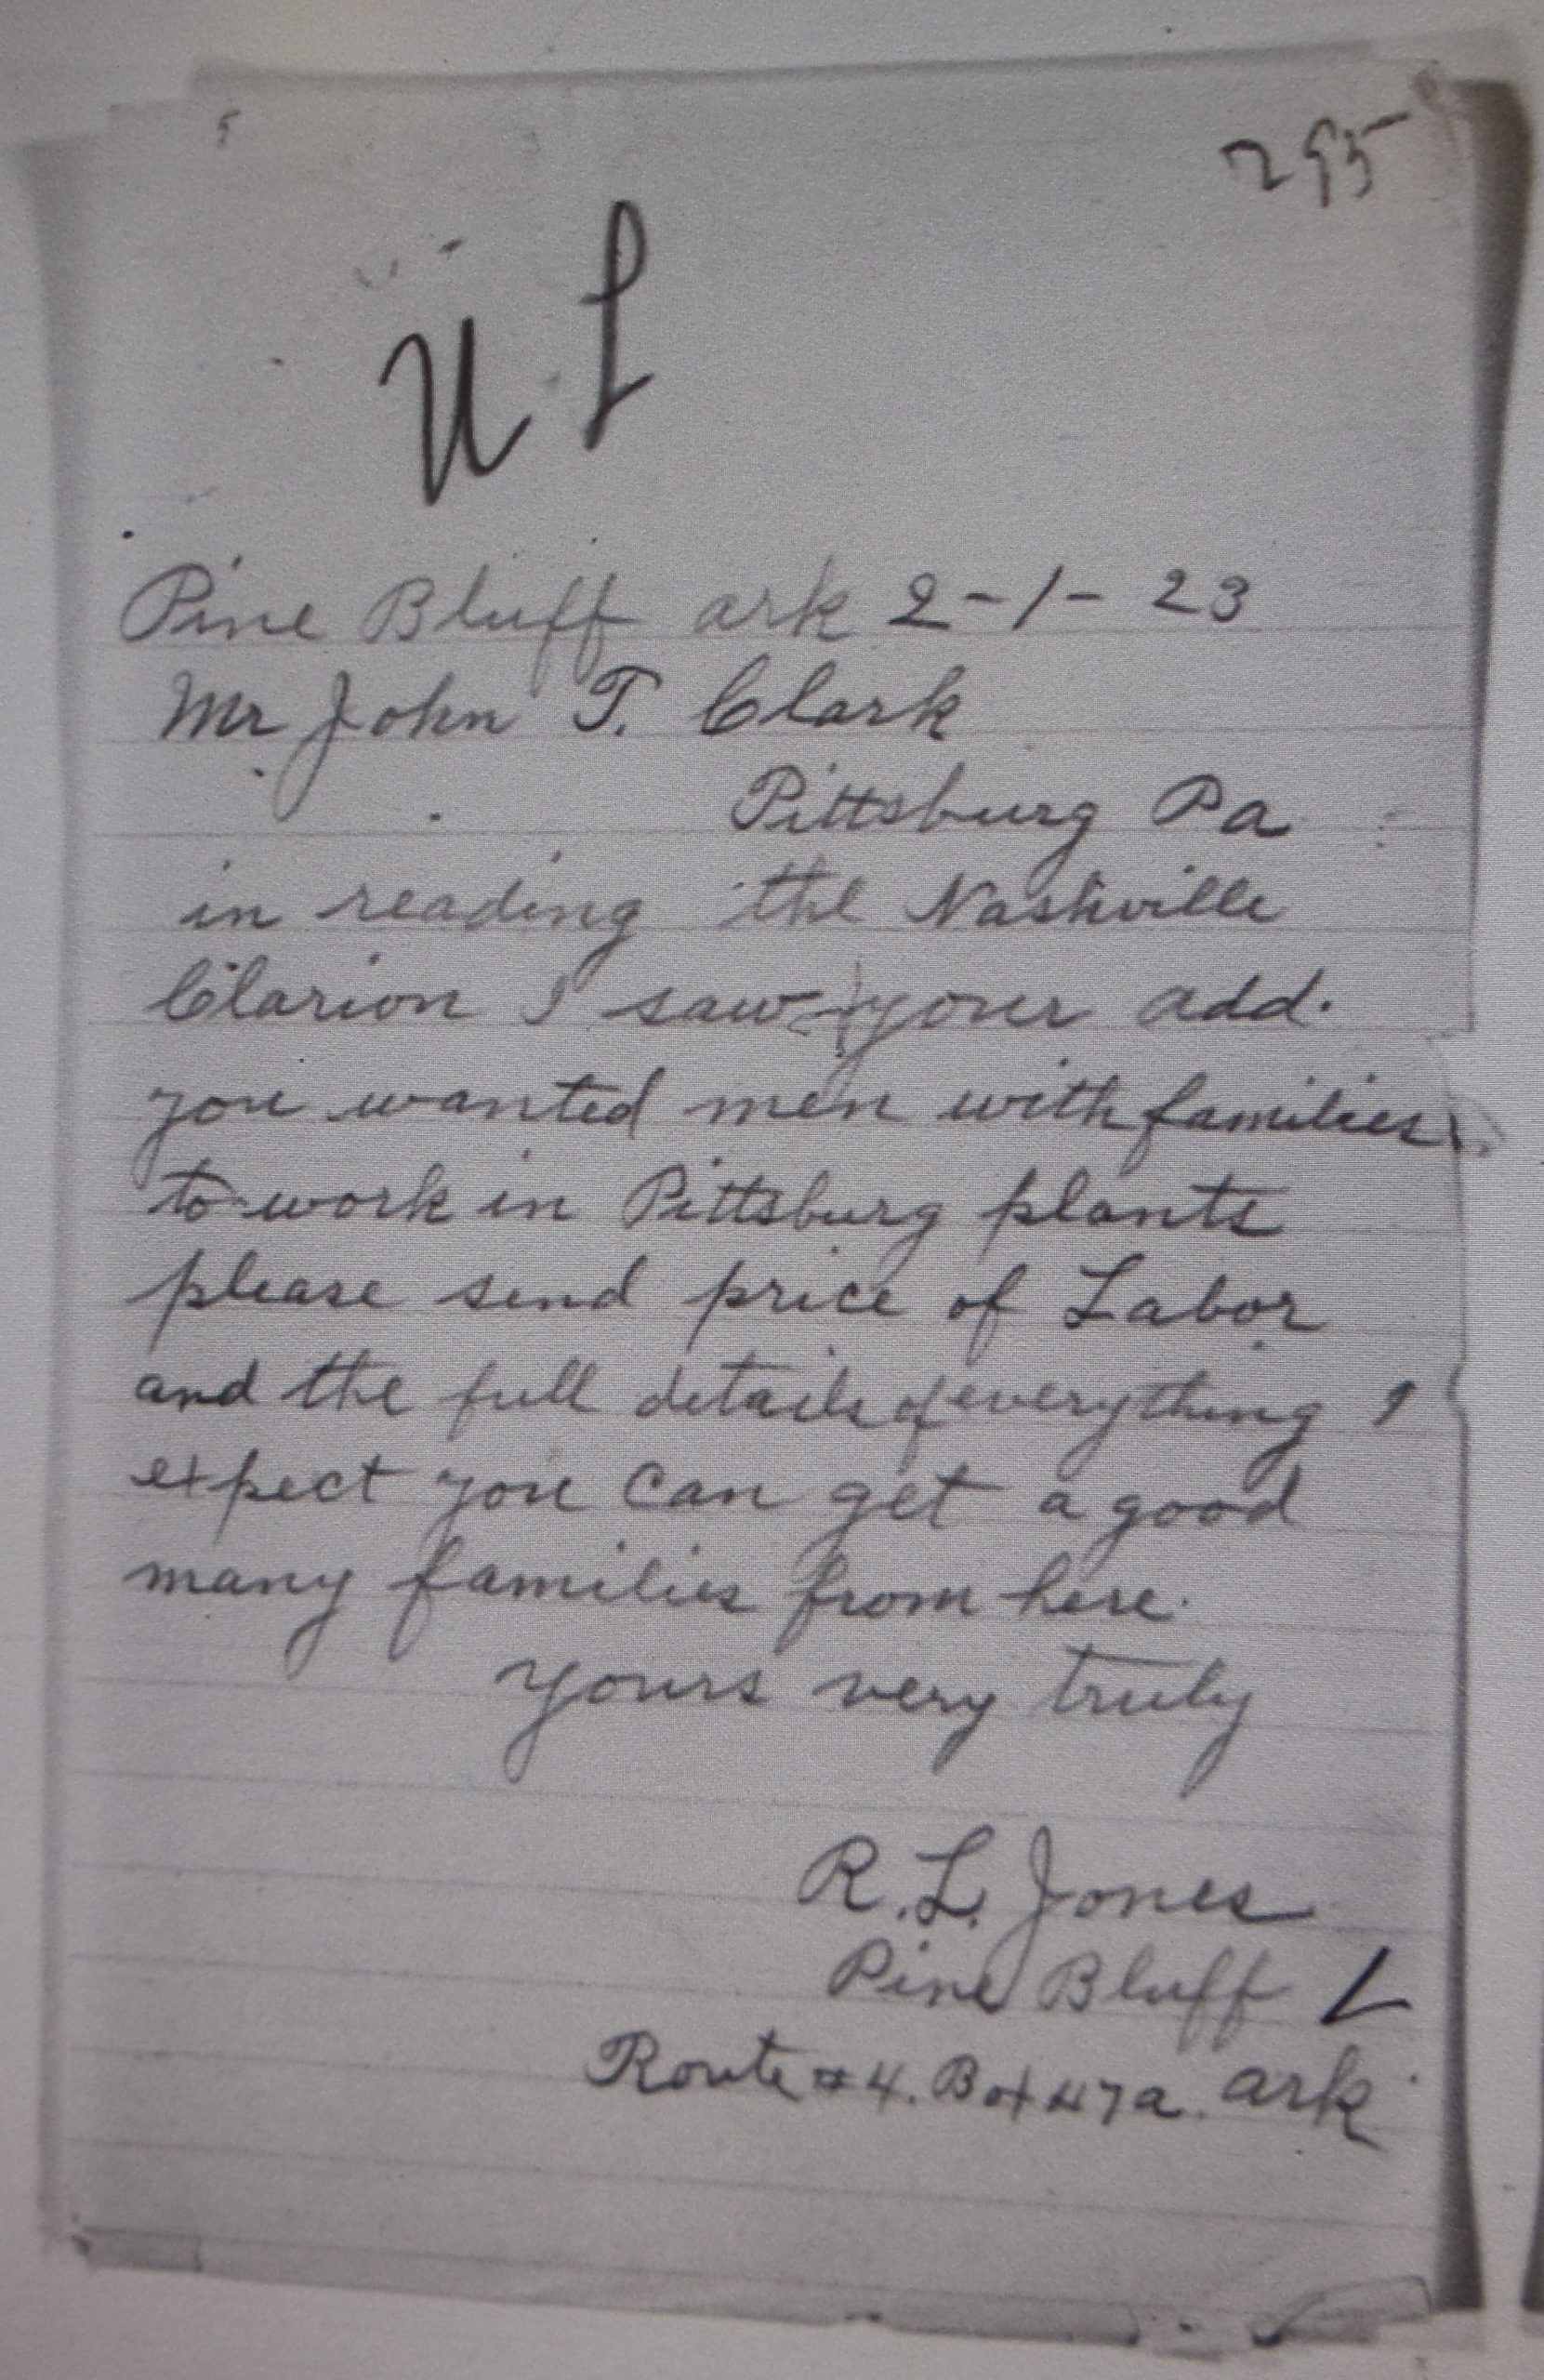 295
U L
Pine Bluff ark 2-1-23
Mr John T. Clark
Pittsburg Pa
in reading the Nashville
Clarion I saw your add.
you wanted men with families
to work in Pittsburg plants
please send price of Labor
and the full details of everything I
expect you can get a good
many families from here.
yours very truly
R.L. Jones
Pine Bluff
Route #4. Box 47a. ark